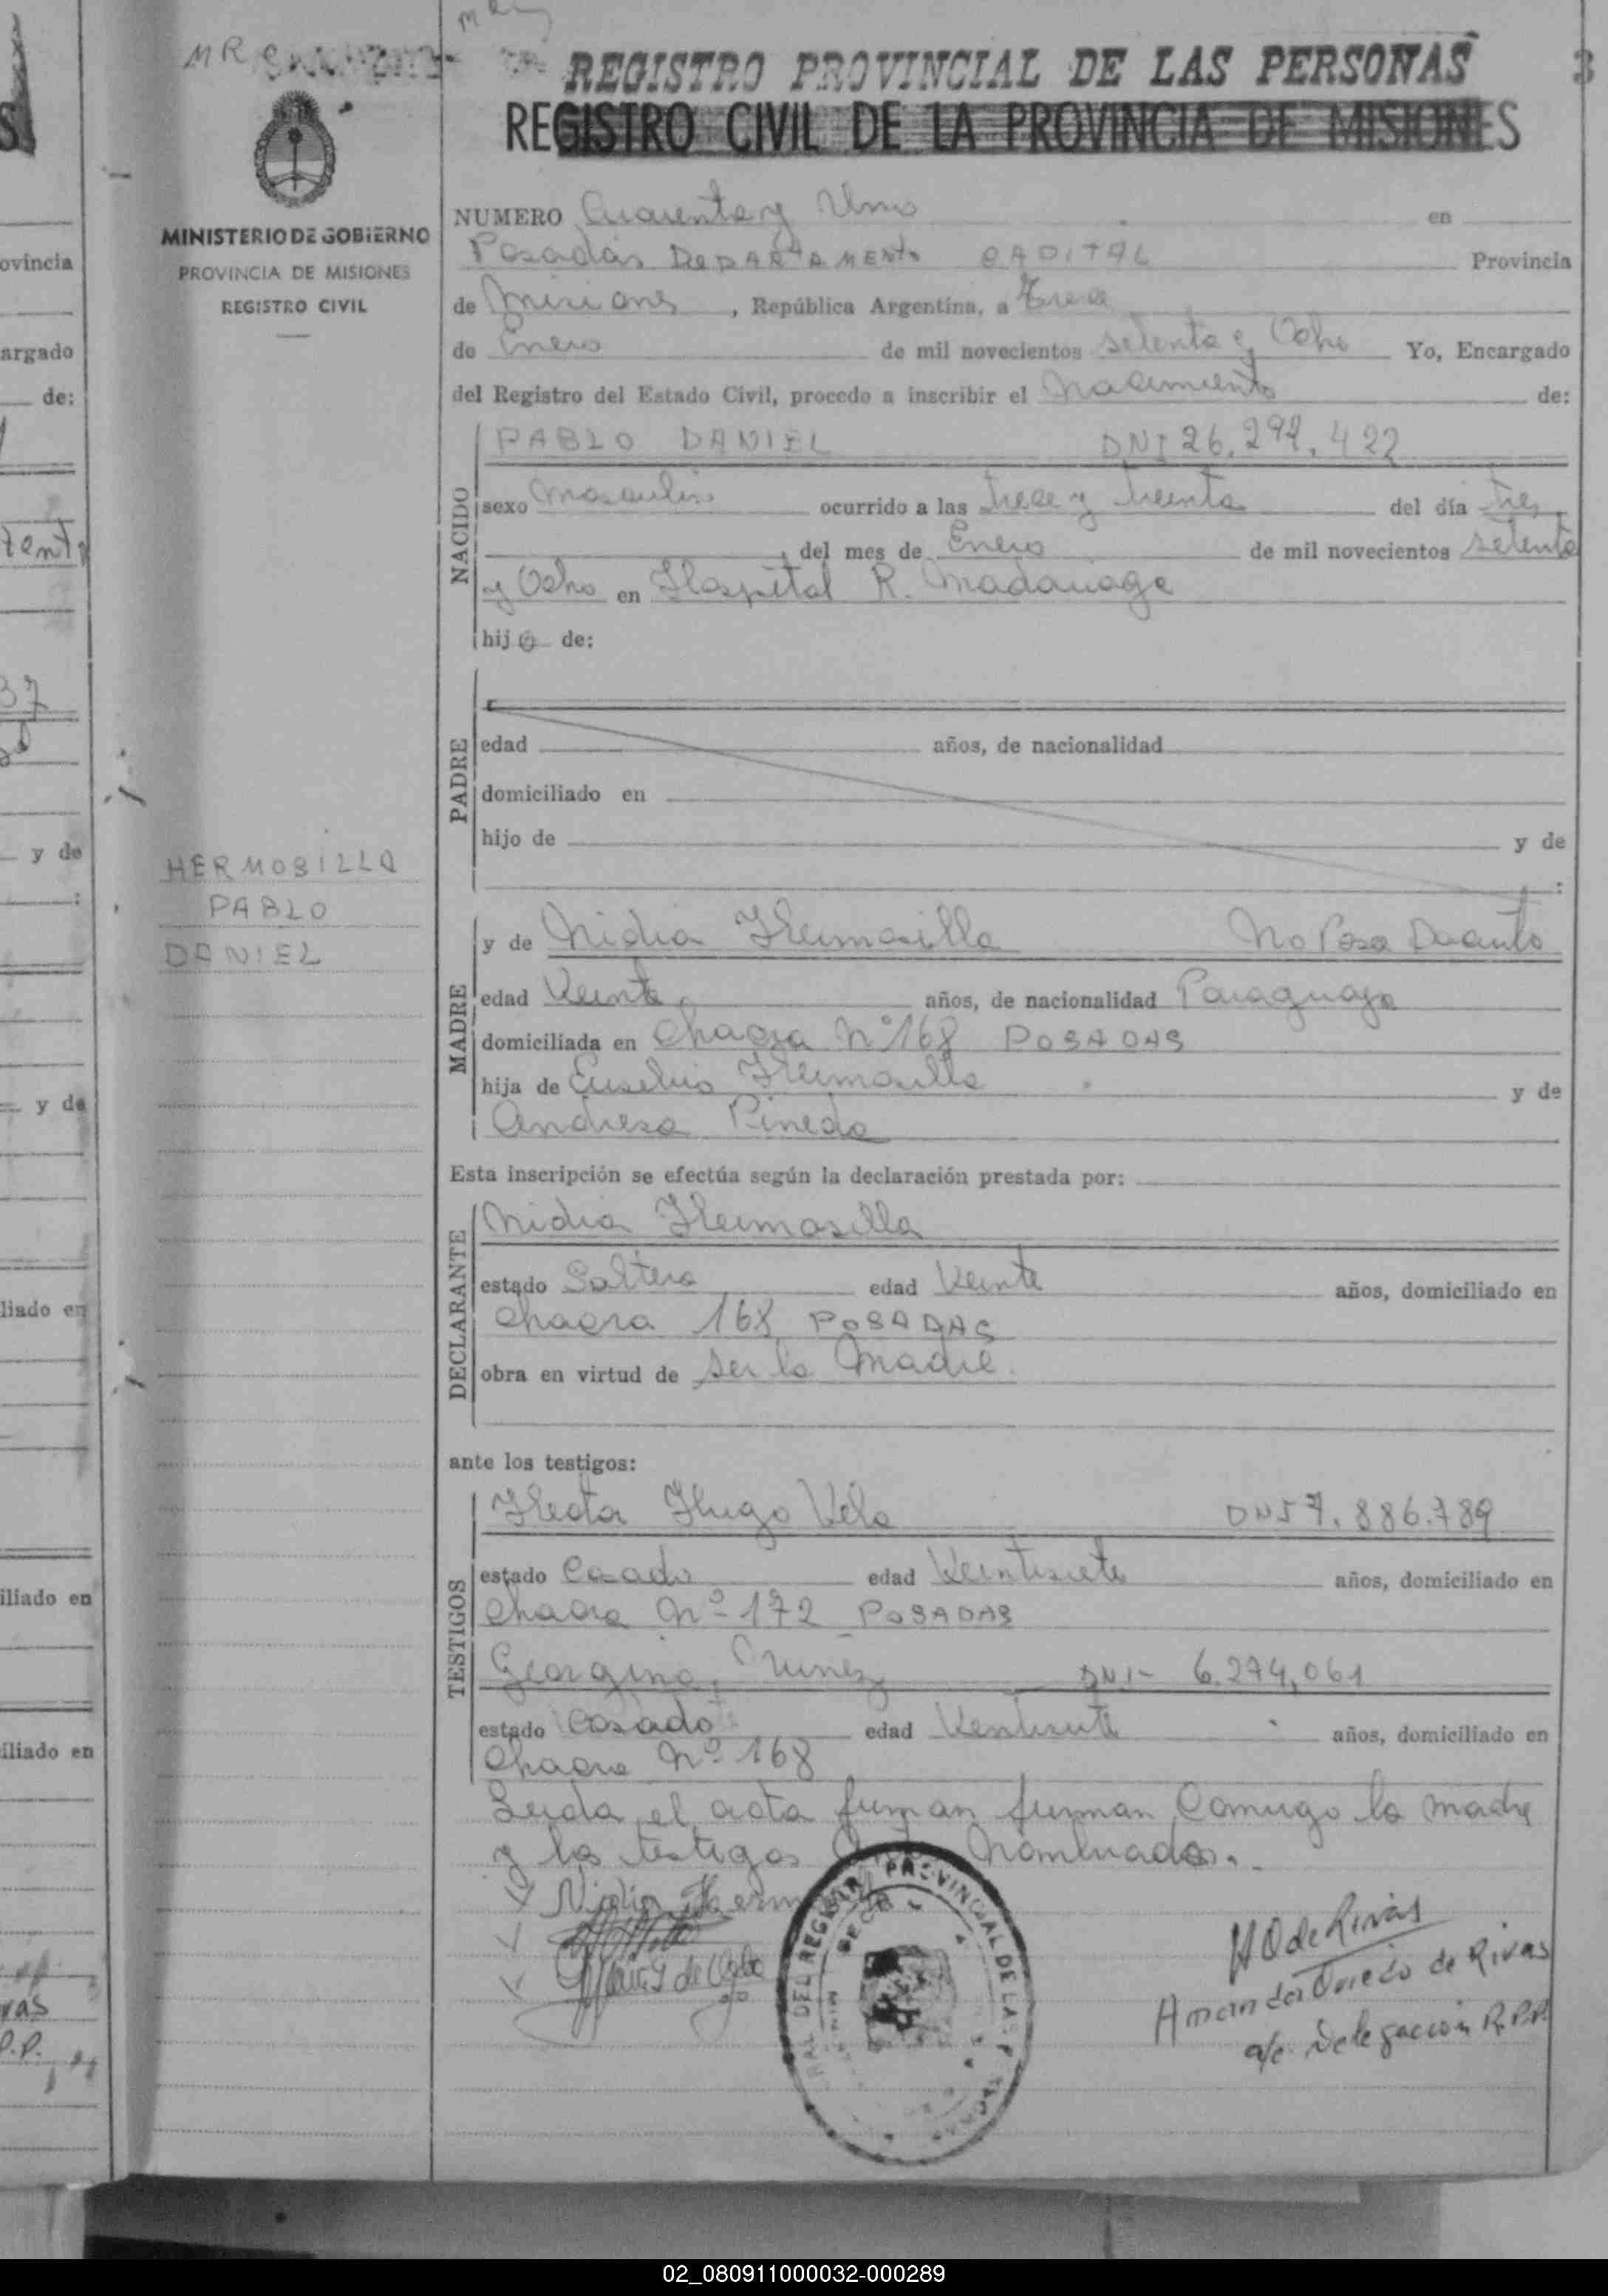 REGISTRO PROVINCIAL DE LAS PERSONAS
3
REGISTRO CIVIL DE LA PROVINCIA DE MISIONES
MINISTERIO DE GOBIERNO
PROVINCIA DE MISIONES
REGISTRO CIVIL
HERMOSILLA
PABLO
DANIEL
NUMERO Cuarenta y Uno en
Posadas DEPARTAMENTO CAPITAL Provincia
de Misiones, República Argentina, a Trece
de Enero de mil novecientos setenta y Ocho Yo, Encargado
del Registro del Estado Civil, procedo a inscribir el Nacimiento de:
NACIDO
PABLO DANIEL DNI 26.292.422
sexo Masculino ocurrido a las trece y treinta del día tres
, del mes de Enero de mil novecientos setenta
y Ocho en Hospital R. Madariaga
hijo de:
PADRE
edad años, de nacionalidad
domiciliado en
hijo de y de
:
MADRE
y de Nidia Hermosilla No Posa
edad Veinte años, de nacionalidad Paraguaya
domiciliada en Chacra Nº 168 POSADAS
hija de Eusebio Hermosilla y de
Andresa Pineda
Esta inscripción se efectúa según la declaración prestada por:
DECLARANTE
Nidia Hermosilla
estado Soltera edad Veinte años, domiciliado en
Chacra 168 POSADAS
obra en virtud de ser la Madre.
ante los testigos:
TESTIGOS
Hector Hugo Velo DNI 7.886.789
estado Casado edad Veintisiete años, domiciliado en
Chacra Nº 172 POSADAS
Georgina Nuñez DNI- 6.274,061
estado Casado edad Veintisiete años, domiciliado en
Chacra Nº 168
Leida el acta firman firman Comigo la madre
y los testigos Nombrados.
Nidia Herm
HO de Rivas
Amanda Oviedo de Rivas
a/c Delegacion R.P.P.
DEL REGISTRO PROVINCIAL DE LAS
y de
:
argado
de:
ovincia
37
y de
liado en
iliado en
iliado en
02_080911000032-000289